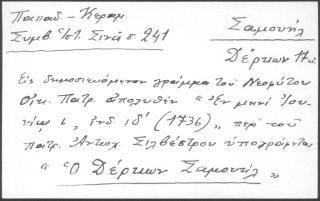 Παπαδ-Κεραμ Σαμουήλ
Συμβ εἰς Ἱστ. Σινᾶ σ. 241 Δέρκων
Εἰς δημοσιευόμενον γράμμα τοῦ Νεοφύτου
Οἰκ. Πατρ. ἀπολυθὲν "Ἐν μηνὶ Ἰου-
νίῳ ι, ἰνδ. ιδ' (1736)„ περὶ τοῦ
πατρ. Ἀντιοχ. Σιλβέστρου ὑπογράφεται
" Ὁ Δέρκων Σαμουὴλ „